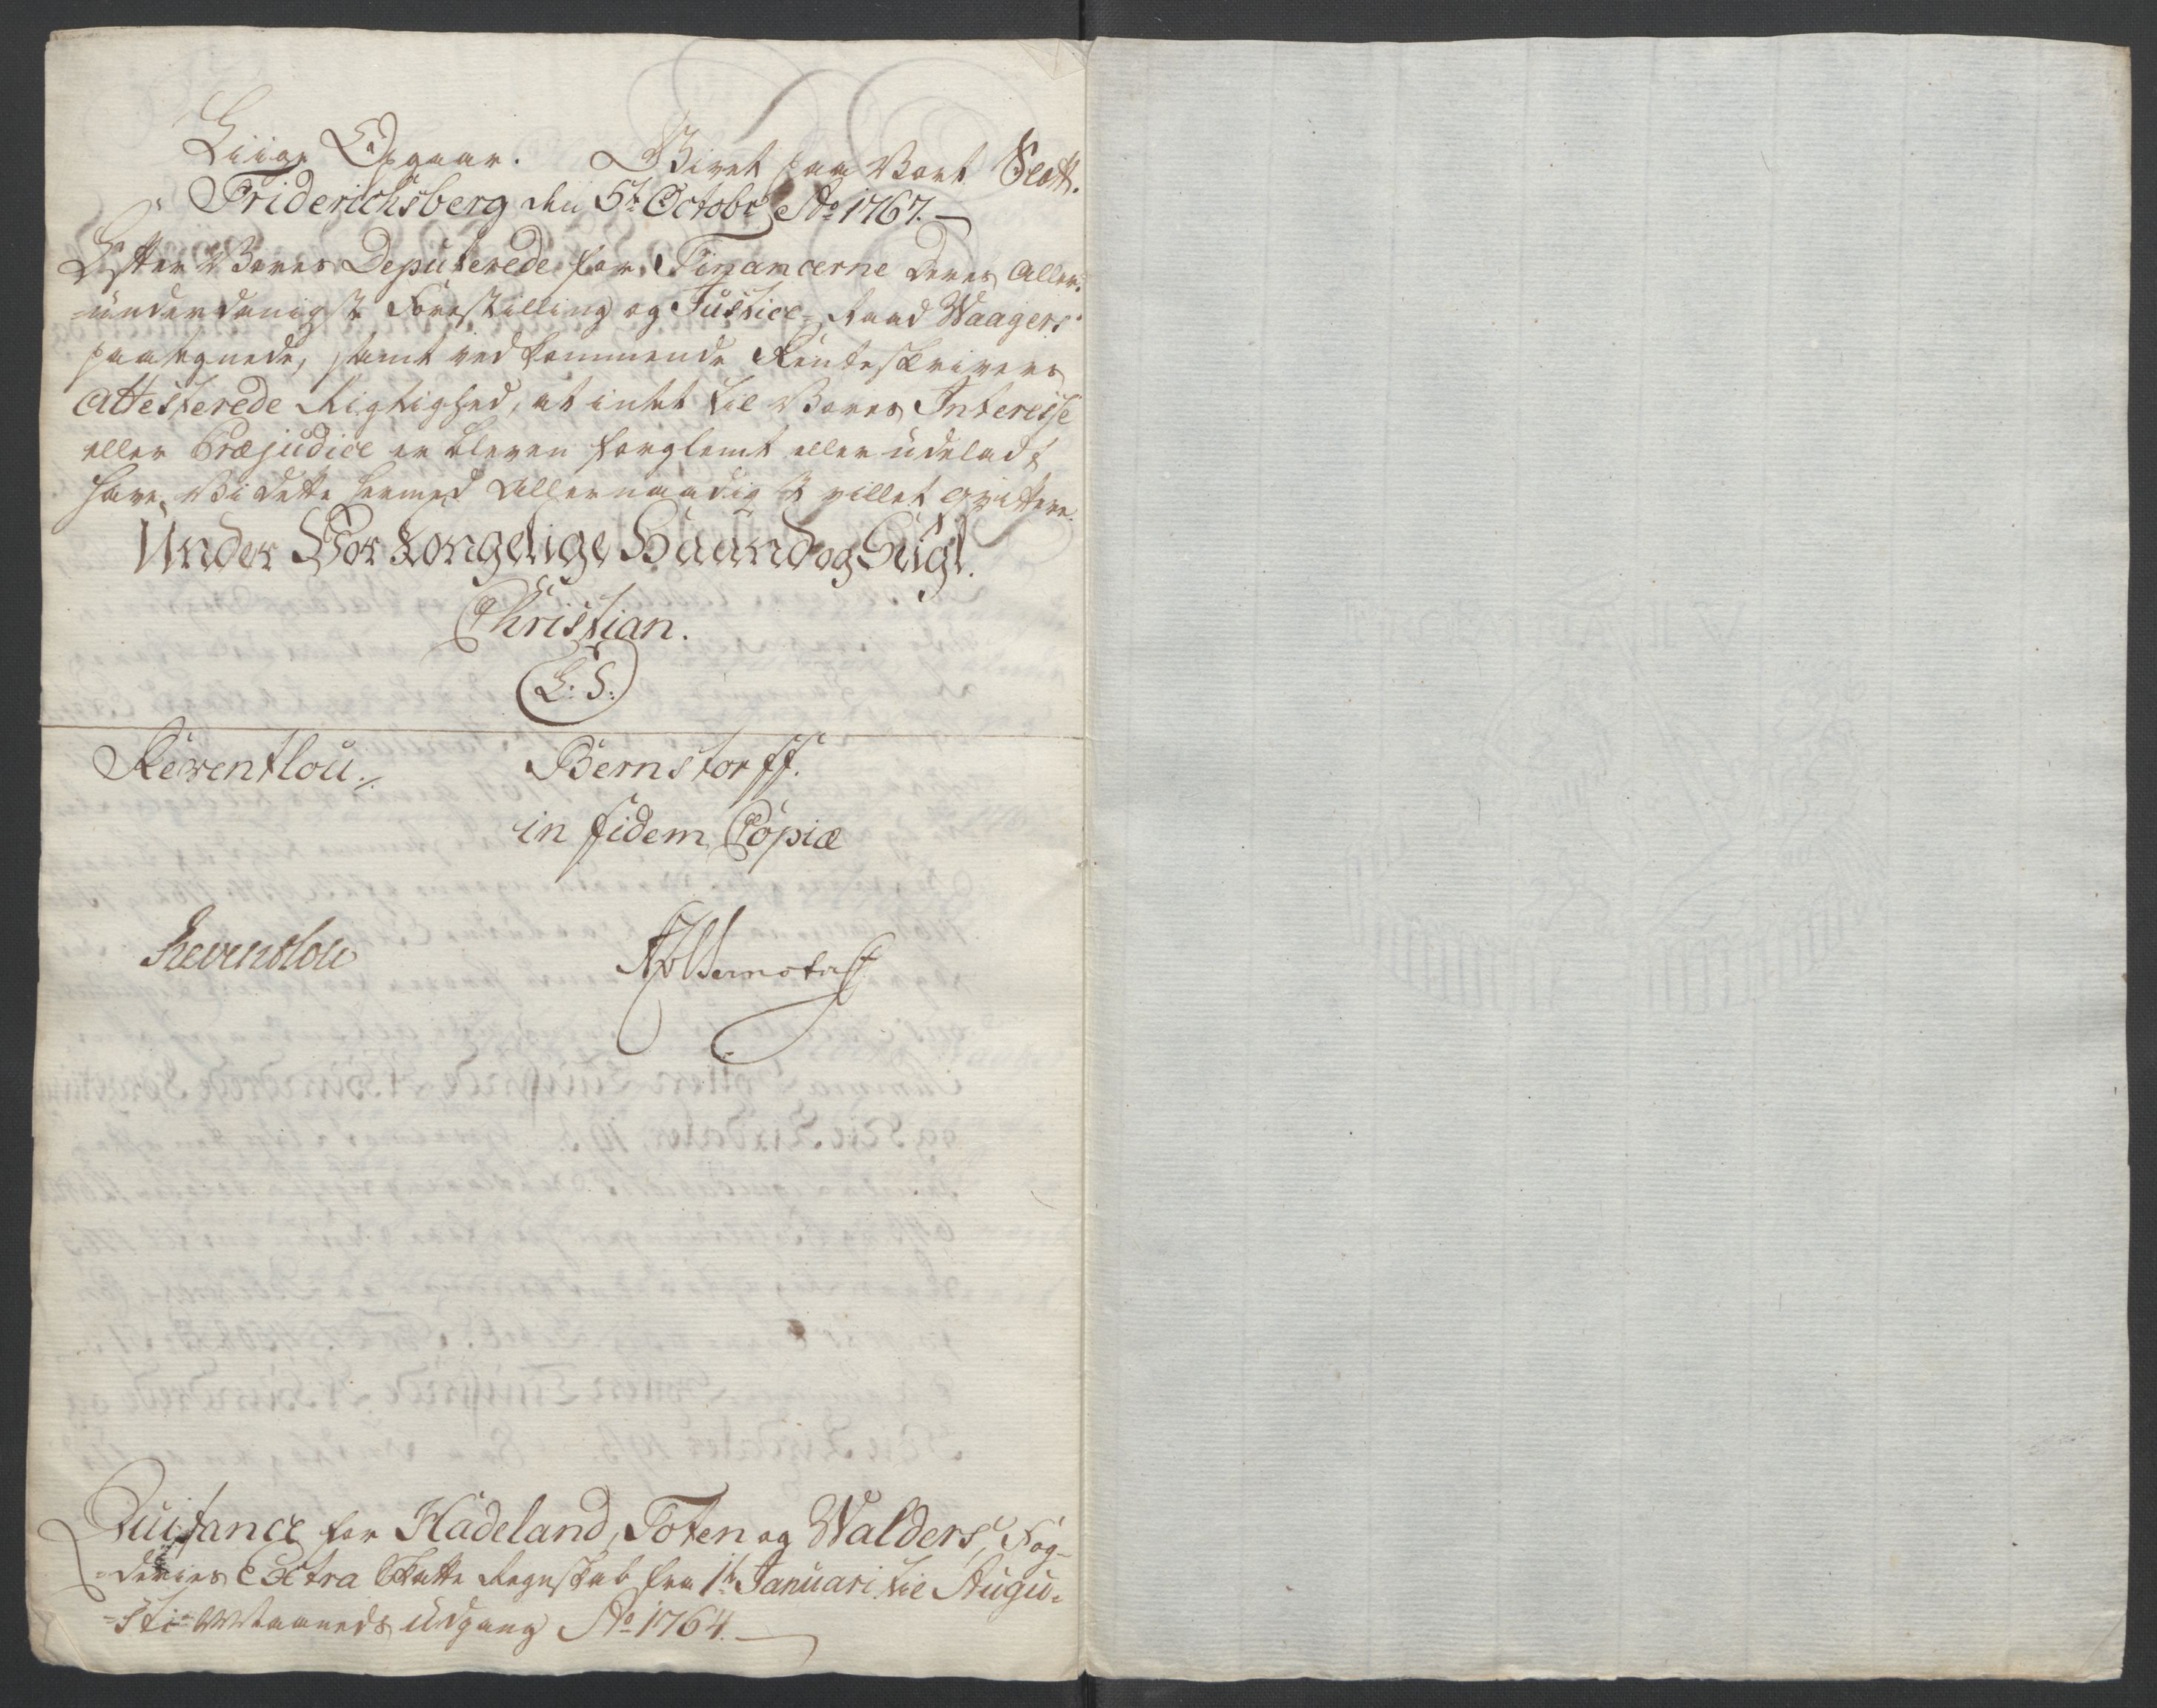 Liige Opgaar. Givet paa Vort Slott.
Friderichsberg den 5te Octobr Ao 1767.
Efter Vores Deputerede for Financerne deres Aller-
-underdanigste Forestilling og Justice-Raad Waagers
paategnede, samt vedkommende Renteskrivers
Attesterede Rigtighed, at intet til Vores Interesse
eller Præjudice er bleven forglemt eller udeladt
have Vi dette hermed Allernaadigst villet qvittere.
Under Vor Kongelige Haand og Sigl.
Christian.
L: S:
Reventlou. Bernstorff.
in fidem Copiæ
Reventlou Bernstorff
Quitance for Hadeland, Toten og Walders, Fog-
-deries Extra Skatte Regnskab fra 1te Januari til Augu-
-sti Maaneds Udgang Ao 1764.